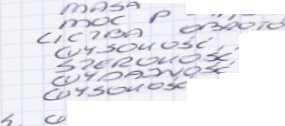 MASA
MOC P
LICZBA OBROTÓ
WYSOKOŚĆ,
SZEROKOŚĆ
WYDAJNOŚĆ
WYSOKOŚĆ
W